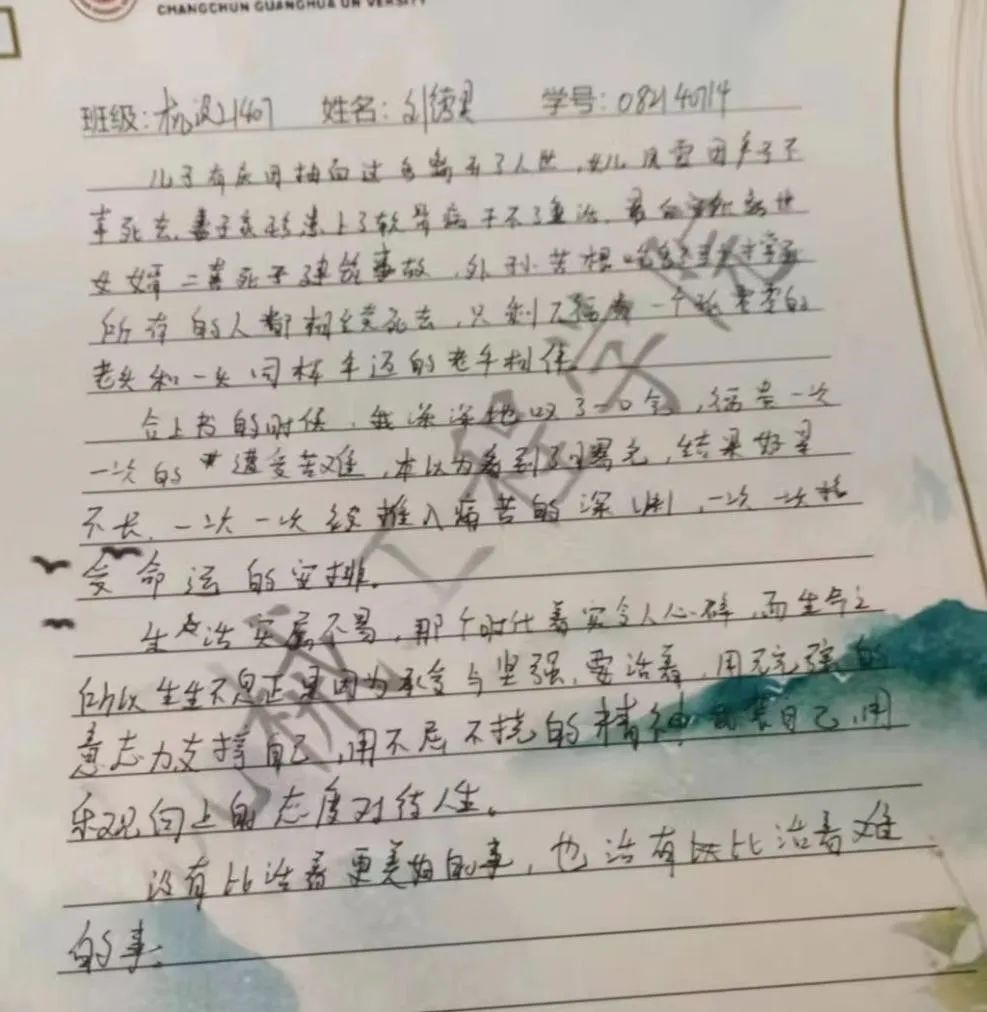 CHANGCHUN GUANGHUA UN VERSITY
班级:机设21407 姓名:刘德 学号:082140714
儿子有庆因抽血过多离开了人世,女儿凤霞因产子不
幸死去,妻子家珍患上了软骨病干不了重活,最后
女婿二喜死于建筑事故,外孙苦根
所有的人都相继死去,只剩下福贵一个孤零零的
老头和一头同样年迈的老牛相伴。
合上书的时候,我深深地叹了一口气,福贵一次
一次的遭受苦难,本以为看到了曙光,结果好景
不长,一次一次被推入痛苦的深渊,一次一次接
受命运的安排。
生活实属不易,那个时代着实令人心碎,而生命之
所以生生不息正是因为承受与坚强,要活着,用无穷强的
意志力支撑自己,用不屈不挠的精神武装自己,用
乐观向上的态度对待人生。
没有比活着更美好的事,也没有比活着难
的事。
机械工程学院